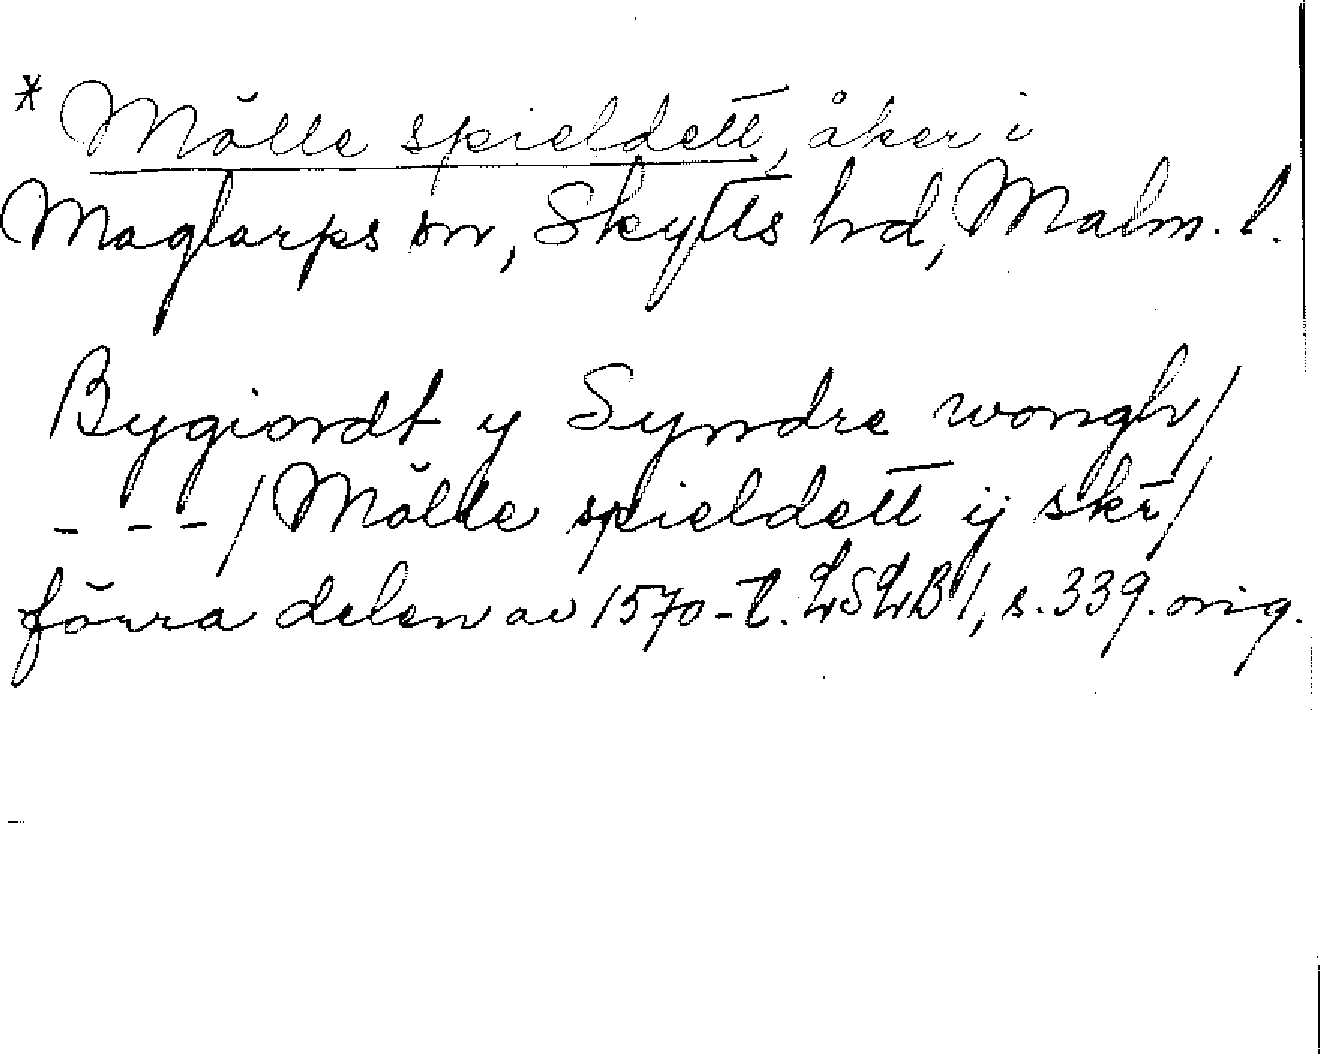 * Mölle spieldett, åker i
Maglarps sn, Skytts hd, Malm. l.
Bygiordt y Syndre wongh/
- - - / Mölle spieldett ij skr/
förra delen av 1570-t. LSLB 1, s. 339. orig.